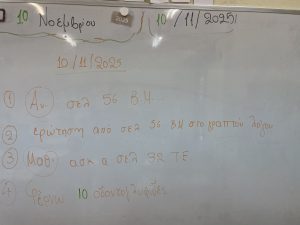 10 Νοεμβρίου 2025 10/11/2025
10/11/2025
1 Αν. σελ 56 Β.Μ.
2 ερώτηση από σελ 56 Β.Μ στο γραπτού λόγου
3 Μαθ. ασκ α σελ 32 Τ.Ε
4 Φέρνω 10 οδοντογλυφίδες